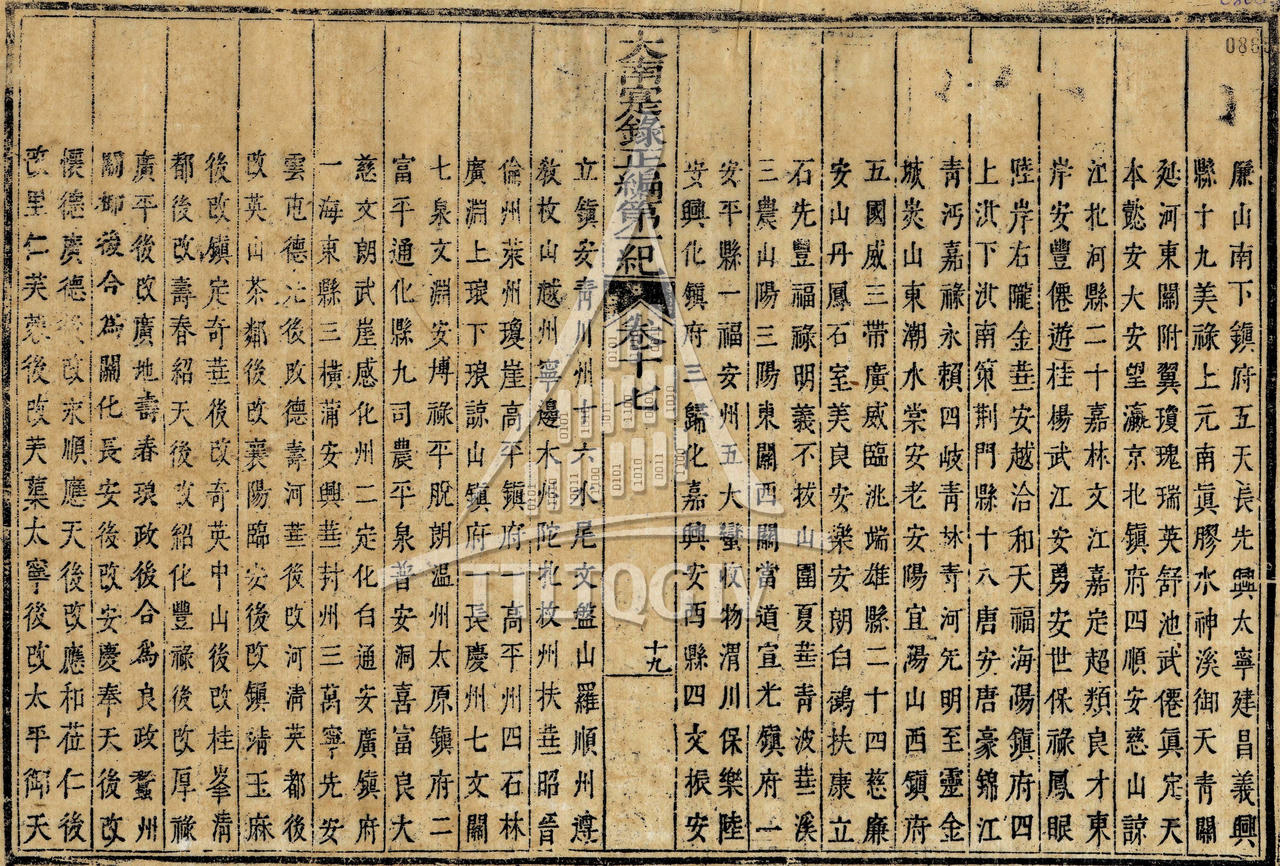 廉山南下鎮府五天長先興太寧建昌義興
縣十九美祿上元南眞膠水神溪御天青關
延河東關附翼瓊瑰瑞英舒池武僊眞定天
本懿安大安望瀛京北鎮府四順安慈山諒
江北河縣二十嘉林文江嘉定超類良才東
岸安豐僊遊桂楊武江安勇安世保祿鳳眼
陸岸右隴金華安越洽和天福海陽鎮府四
上洪下洪南策荆門縣十八唐安唐豪錦江
青沔嘉祿永賴四岐青林青河先明至靈金
城炭山東潮水棠安老安陽宜陽山西鎮府
五國威三帶廣威臨洮端雄縣二十四慈廉
安山丹鳳石室美良安樂安朗白鶴扶康立
石先豐福祿明義不拔山圍夏華青波華溪
三農山陽三陽東闌西關當道宣光鎮府一
安平縣一福安州五大蠻收物渭川保樂陸
安興化鎮府三歸化嘉興安西縣四文振安
大南寔錄正編第一紀 卷十七 十九
立鎮安青川州十六水尾文盤山羅順州遵
教枚山越州寧邊木州陀北枚州扶華昭晉
倫州萊州瓊崖高平鎮府一高平州四石林
廣淵上琅下琅諒山鎮府一長慶州七文關
七泉文淵安博祿平脫朗温州太原鎮府二
富平通化縣九司農平泉普安洞喜富良大
慈文朗武崖感化州二定化白通安廣鎮府
一海東縣三橫蒲安興華封州三萬寧先安
雲屯德光後改德壽河華後改河清英都後
改英山茶鄰後改襄陽臨安後改鎮靖玉麻
後改鎮定奇華後改奇英中山後改桂峯清
都後改壽春紹天後改紹化豐祿後改厚祿
廣平後改廣地壽春琅政後合爲良政蠶州
關鄉後今爲關化長安後改安慶奉天後改
懷德廣德後改永順應天後改應和莅仁後
改里仁芙蓉後改芙蕖太寧後改太平御天